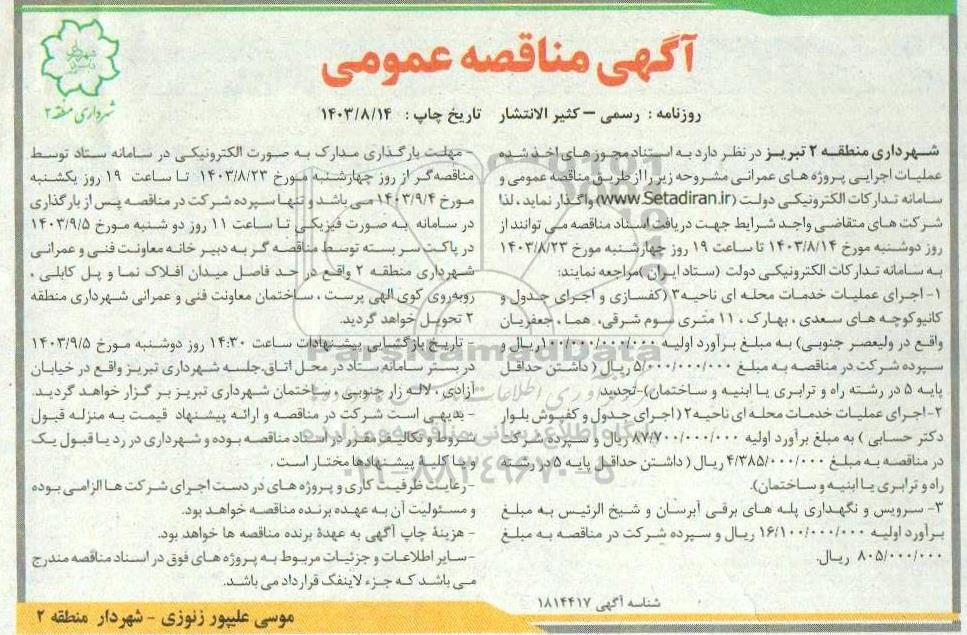 آگهی مناقصه عمومی
شهرداری منطقه ۲
روزنامه : رسمی – کثیر الانتشار    تاریخ چاپ : ۱۴۰۳/۸/۱۴
شهرداری منطقه ۲ تبریز در نظر دارد به استناد مجوز های اخذ شده
عملیات اجرایی پروژه های عمرانی مشروحه زیر را از طریق مناقصه عمومی و
سامانه تدارکات الکترونیکی دولت (www.Setadiran.ir) واگذار نماید، لذا
شرکت های متقاضی واجد شرایط جهت دریافت اسناد مناقصه می توانند از
روز دوشنبه مورخ ۱۴۰۳/۸/۱۴ تا ساعت ۱۹ روز چهارشنبه مورخ ۱۴۰۳/۸/۲۳
به سامانه تدارکات الکترونیکی دولت (ستاد ایران )مراجعه نمایند:
۱- اجرای عملیات خدمات محله ای ناحیه۳ (کفسازی و اجرای جدول و
کانیوکوچه های سعدی ، بهارک ، ۱۱ متری سوم شرقی، هما ، جعفریان
واقع در ولیعصر جنوبی) به مبلغ برآورد اولیه ۱۰۰/۰۰۰/۰۰۰/۰۰۰ ریال و
سپرده شرکت در مناقصه به مبلغ ۵/۰۰۰/۰۰۰/۰۰۰ ریال ( داشتن حداقل
پایه ۵ در رشته راه و ترابری یا ابنیه و ساختمان)-تجدید
۲- اجرای عملیات خدمات محله ای ناحیه۲ ( اجرای جدول و کفپوش بلوار
دکتر حسابی ) به مبلغ برآورد اولیه ۸۷/۷۰۰/۰۰۰/۰۰۰ ریال و سپرده شرکت
در مناقصه به مبلغ ۴/۳۸۵/۰۰۰/۰۰۰ ریال ( داشتن حداقل پایه ۵ در رشته
راه و ترابری یا ابنیه و ساختمان).
۳- سرویس و نگهداری پله های برقی آبرسان و شیخ الرئیس به مبلغ
برآورد اولیه ۱۶/۱۰۰/۰۰۰/۰۰۰ ریال و سپرده شرکت در مناقصه به مبلغ
۸۰۵/۰۰۰/۰۰۰ ریال.
شناسه آگهی ۱۸۱۴۴۱۷
- مهلت بارگذاری مدارک به صورت الکترونیکی در سامانه ستاد توسط
مناقصه‌گر از روز چهارشنبه مورخ ۱۴۰۳/۸/۲۳ تا ساعت ۱۹ روز یکشنبه
مورخ ۱۴۰۳/۹/۴ می باشد و تنها سپرده شرکت در مناقصه پس از بارگذاری
در سامانه به صورت فیزیکی تا ساعت ۱۱ روز دو شنبه مورخ ۱۴۰۳/۹/۵
در پاکت سر بسته توسط مناقصه گر به دبیر خانه معاونت فنی و عمرانی
شهرداری منطقه ۲ واقع در حد فاصل میدان افلاک نما و پل کابلی ،
روبه‌روی کوی الهی پرست ، ساختمان معاونت فنی و عمرانی شهرداری منطقه
۲ تحویل خواهد گردید.
- تاریخ بازگشایی پیشنهادات ساعت ۱۴:۳۰ روز دوشنبه مورخ ۱۴۰۳/۹/۵
در بستر سامانه ستاد در محل اتاق جلسه شهرداری تبریز واقع در خیابان
آزادی ، لاله زار جنوبی ، ساختمان شهرداری تبریز بر گزار خواهد گردید.
- بدیهی است شرکت در مناقصه و ارائه پیشنهاد قیمت به منزله قبول
شروط و تکالیف مقرر در اسناد مناقصه بوده و شهرداری در رد یا قبول یک
و یا کلیه پیشنهادها مختار است .
- رعایت ظرفیت کاری و پروژه های در دست اجرای شرکت ها الزامی بوده
و مسئولیت آن به عهده برنده مناقصه خواهد بود.
- هزینۀ چاپ آگهی به عهدۀ برنده مناقصه ها خواهد بود.
- سایر اطلاعات و جزئیات مربوط به پروژه های فوق در اسناد مناقصه مندرج
می باشد که جزء لاینفک قرارداد می باشد.
موسی علیپور زنوزی - شهردار منطقه ۲
ParsNamadData
۰۲۱-۸۸۳۴۹۶۷۰-۵